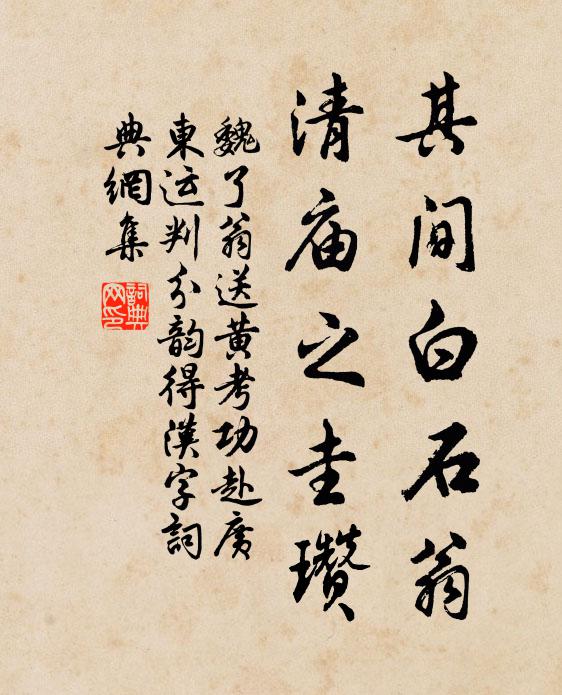 其间白石翁
清庙之圭瓒
魏了翁送黄考功赴广
东运判分韵得汉字词
典网集
词典
网印